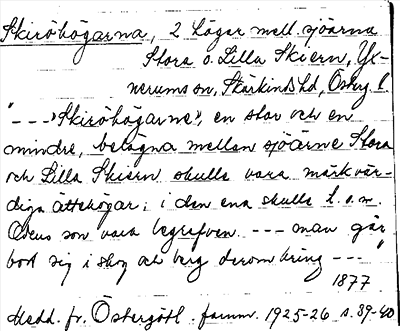 Skiröhögarna, 2 högar mell. sjöarna
Stora o. Lilla Skiern, Yx-
nerums sn, Skärkinds hd, Österg. l.
"---"Skiröhögarne", en stor och en
mindre, belägna mellan sjöarne Stora
och Lilla Skiern skulle vara märkvär-
diga ättehögar; i den ena skulle t.o.m.
Odens son vara begrafven. --- man går
bort sig i skog och berg deromkring ---"
1877
Medd. fr. Östergötl. fornm. 1925-26 s. 39-40